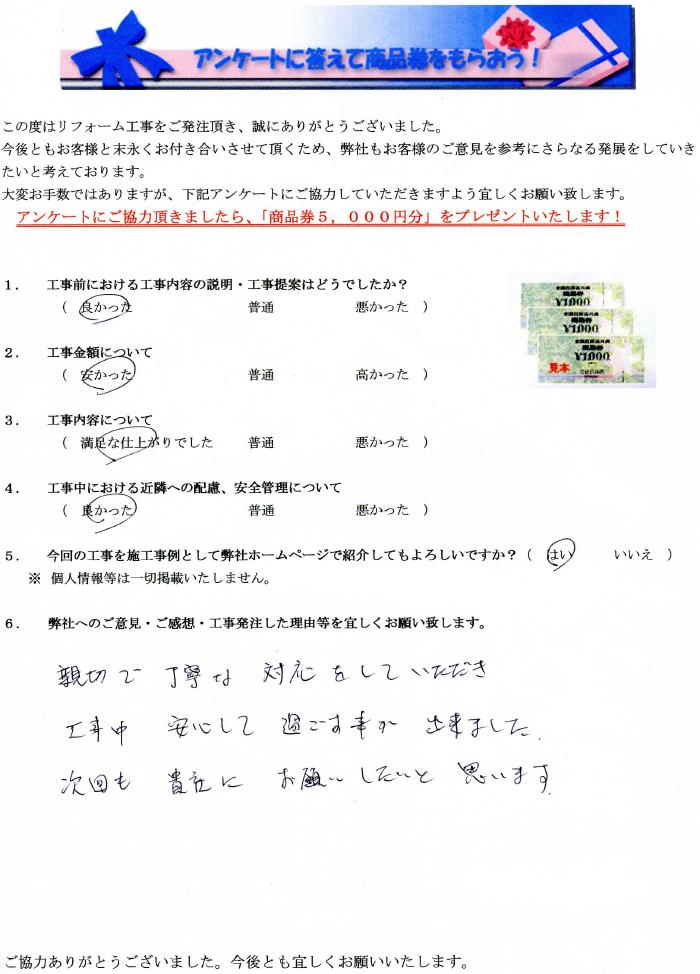 アンケートに答えて商品券をもらおう！
この度はリフォーム工事をご発注頂き、誠にありがとうございました。
今後ともお客様と末永くお付き合いさせて頂くため、弊社もお客様のご意見を参考にさらなる発展をしていき
たいと考えております。
大変お手数ではありますが、下記アンケートにご協力していただきますよう宜しくお願い致します。
アンケートにご協力頂きましたら、「商品券５，０００円分」をプレゼントいたします！
１． 工事前における工事内容の説明・工事提案はどうでしたか？
（ 良かった 普通 悪かった ）
¥1,000
¥1,000
¥1,000
見本
２． 工事金額について
（ 安かった 普通 高かった ）
３． 工事内容について
（ 満足な仕上がりでした 普通 悪かった ）
４． 工事中における近隣への配慮、安全管理について
（ 良かった 普通 悪かった ）
５． 今回の工事を施工事例として弊社ホームページで紹介してもよろしいですか？（ はい いいえ ）
※ 個人情報等は一切掲載いたしません。
６． 弊社へのご意見・ご感想・工事発注した理由等を宜しくお願い致します。
親切で 丁寧な 対応をしていただき
工事中 安心して 過ごす事が 出来ました.
次回も 貴社に お願いしたいと 思います.
ご協力ありがとうございました。今後とも宜しくお願いいたします。